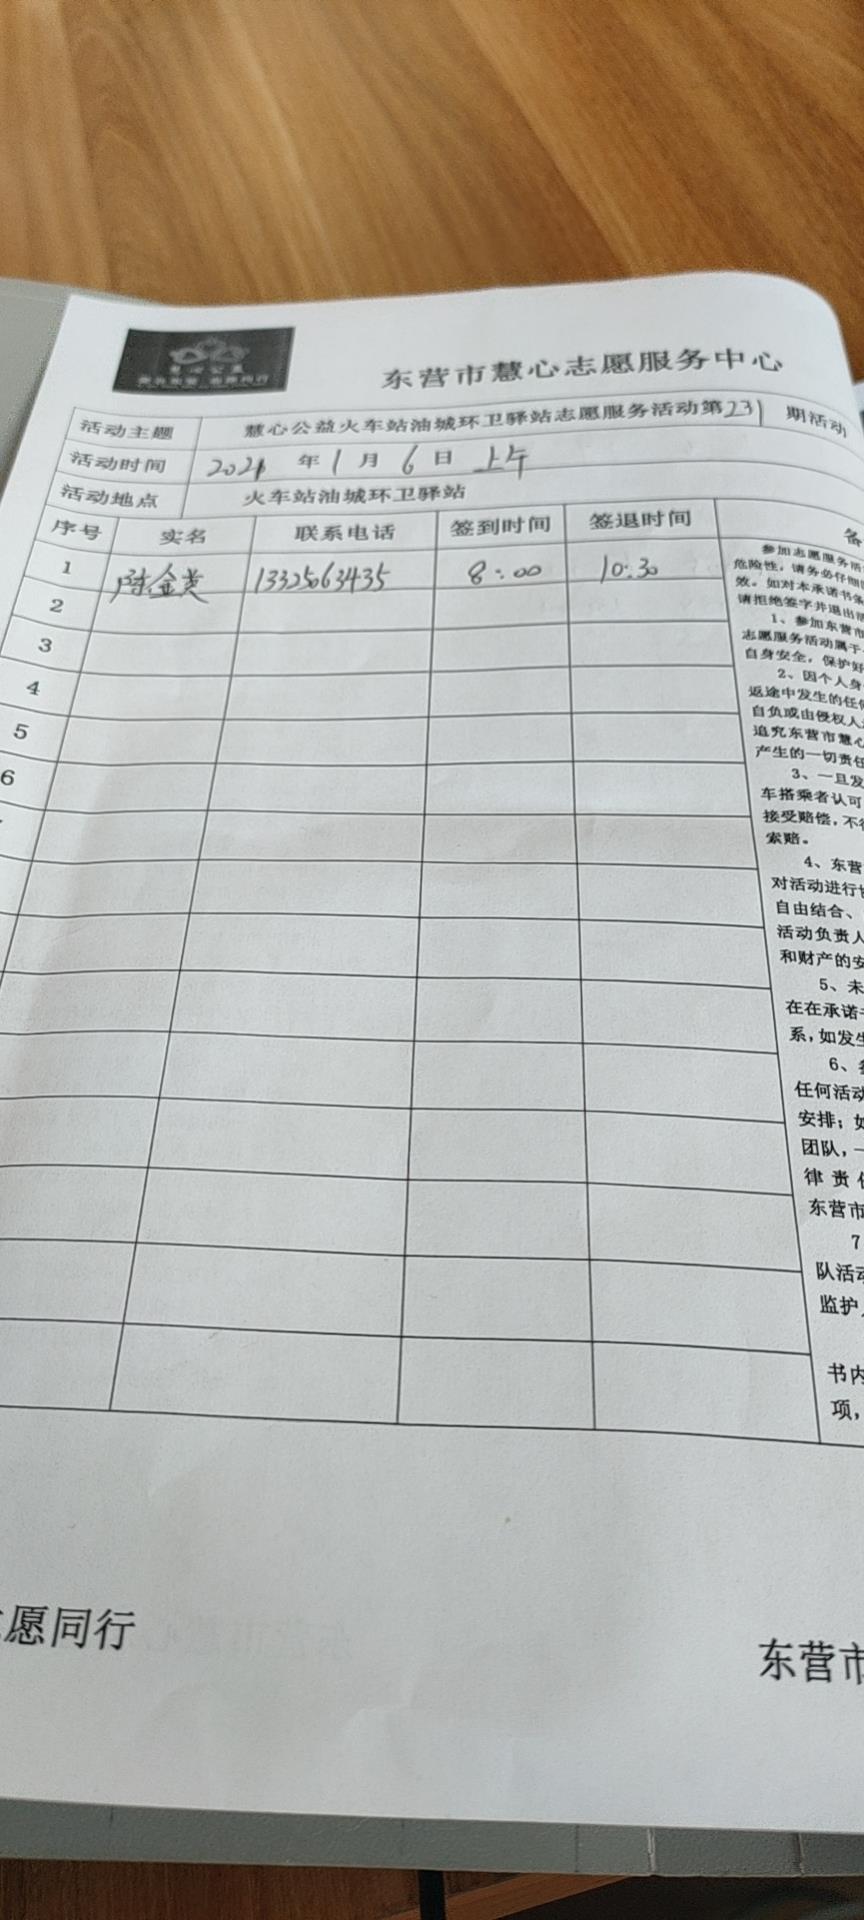 慧心公益
东营市慧心志愿服务中心
活动主题 慧心公益火车站油城环卫驿站志愿服务活动第231期活动
活动时间 2021年1月6日 上午
活动地点 火车站油城环卫驿站
序号 实名 联系电话 签到时间 签退时间 备
1 陈金 13325063435 8:00 10:30
2
3
4
5
6
参加志愿服务活
危险性，请务必仔细
效。如对本承诺书条
请拒绝签字并退出活
1、参加东营市
志愿服务活动属于
自身安全，保护好
2、因个人身
返途中发生的任何
自负或由侵权人
追究东营市慧心
产生的一切责任
3、一旦发
车搭乘者认可
接受赔偿，不得
索赔。
4、东营
对活动进行
自由结合、
活动负责人
和财产的安
5、未
在在承诺书
系，如发生
6、
任何活动
安排；如
团队，一
律责任
东营市
7
队活动
监护
书内
项，
愿同行
东营市